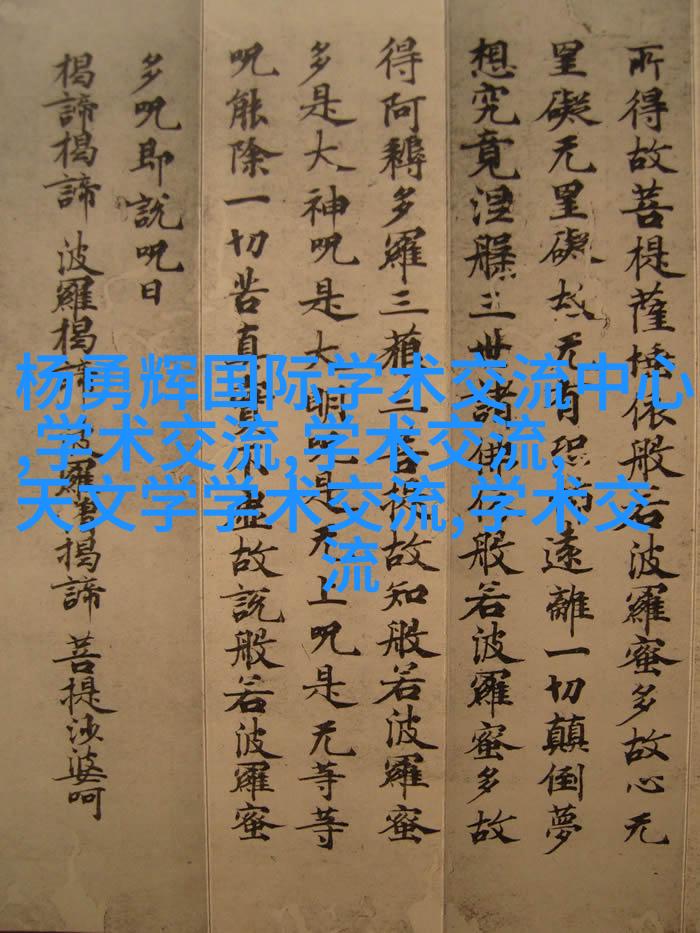 所得故菩提薩埵依般若波羅蜜多故心无
罣礙无罣礙故无有恐怖遠離一切顛倒夢
想究竟涅槃三世諸佛依般若波羅蜜多故
得阿耨多羅三藐三菩提故知般若波羅蜜
多是大神呪是大明呪是无上呪是无等等
呪能除一切苦真實不虛故說般若波羅蜜
多呪即說呪曰
揭諦揭諦 波羅揭諦 波羅僧揭諦 菩提沙婆呵
杨勇辉国际学术交流中心
,学术交流,学术交流,
天文学学术交流,学术交
流